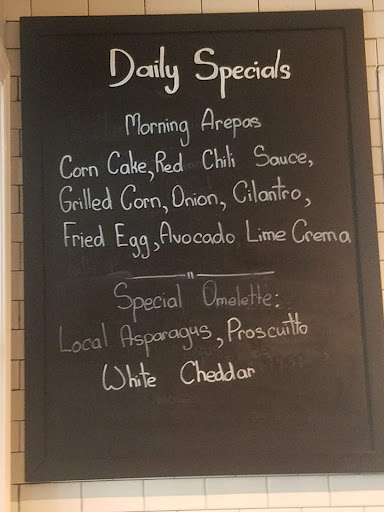 Daily Specials
Morning Arepas
Corn Cake, Red Chili Sauce,
Grilled Corn, Onion, Cilantro,
Fried Egg, Avocado Lime Crema
Special Omelette:
Local Asparagus, Proscuitto
White Cheddar